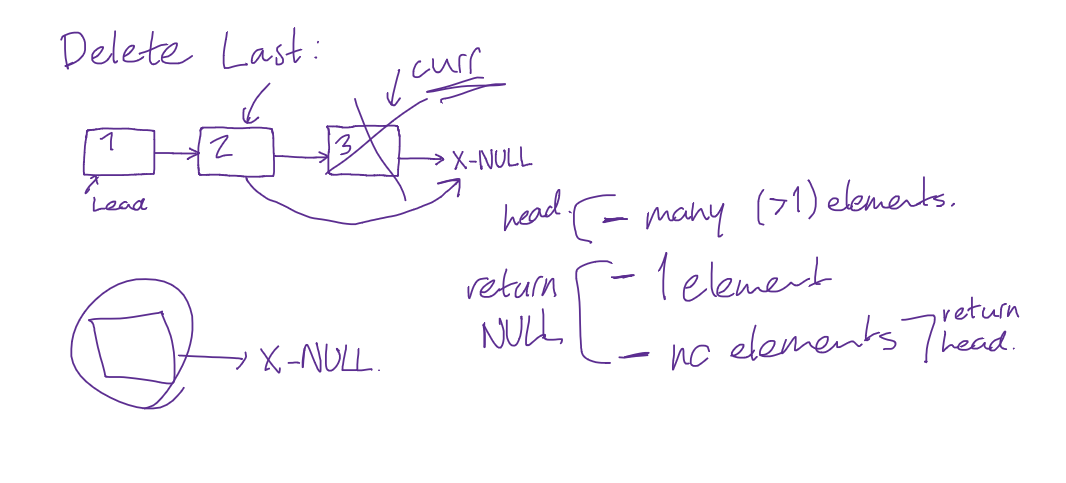 Delete Last:
curr
1 2 3
X-NULL
head
head. - many (>1) elements.
return - 1 element
NULL - no elements return
head.
X-NULL.